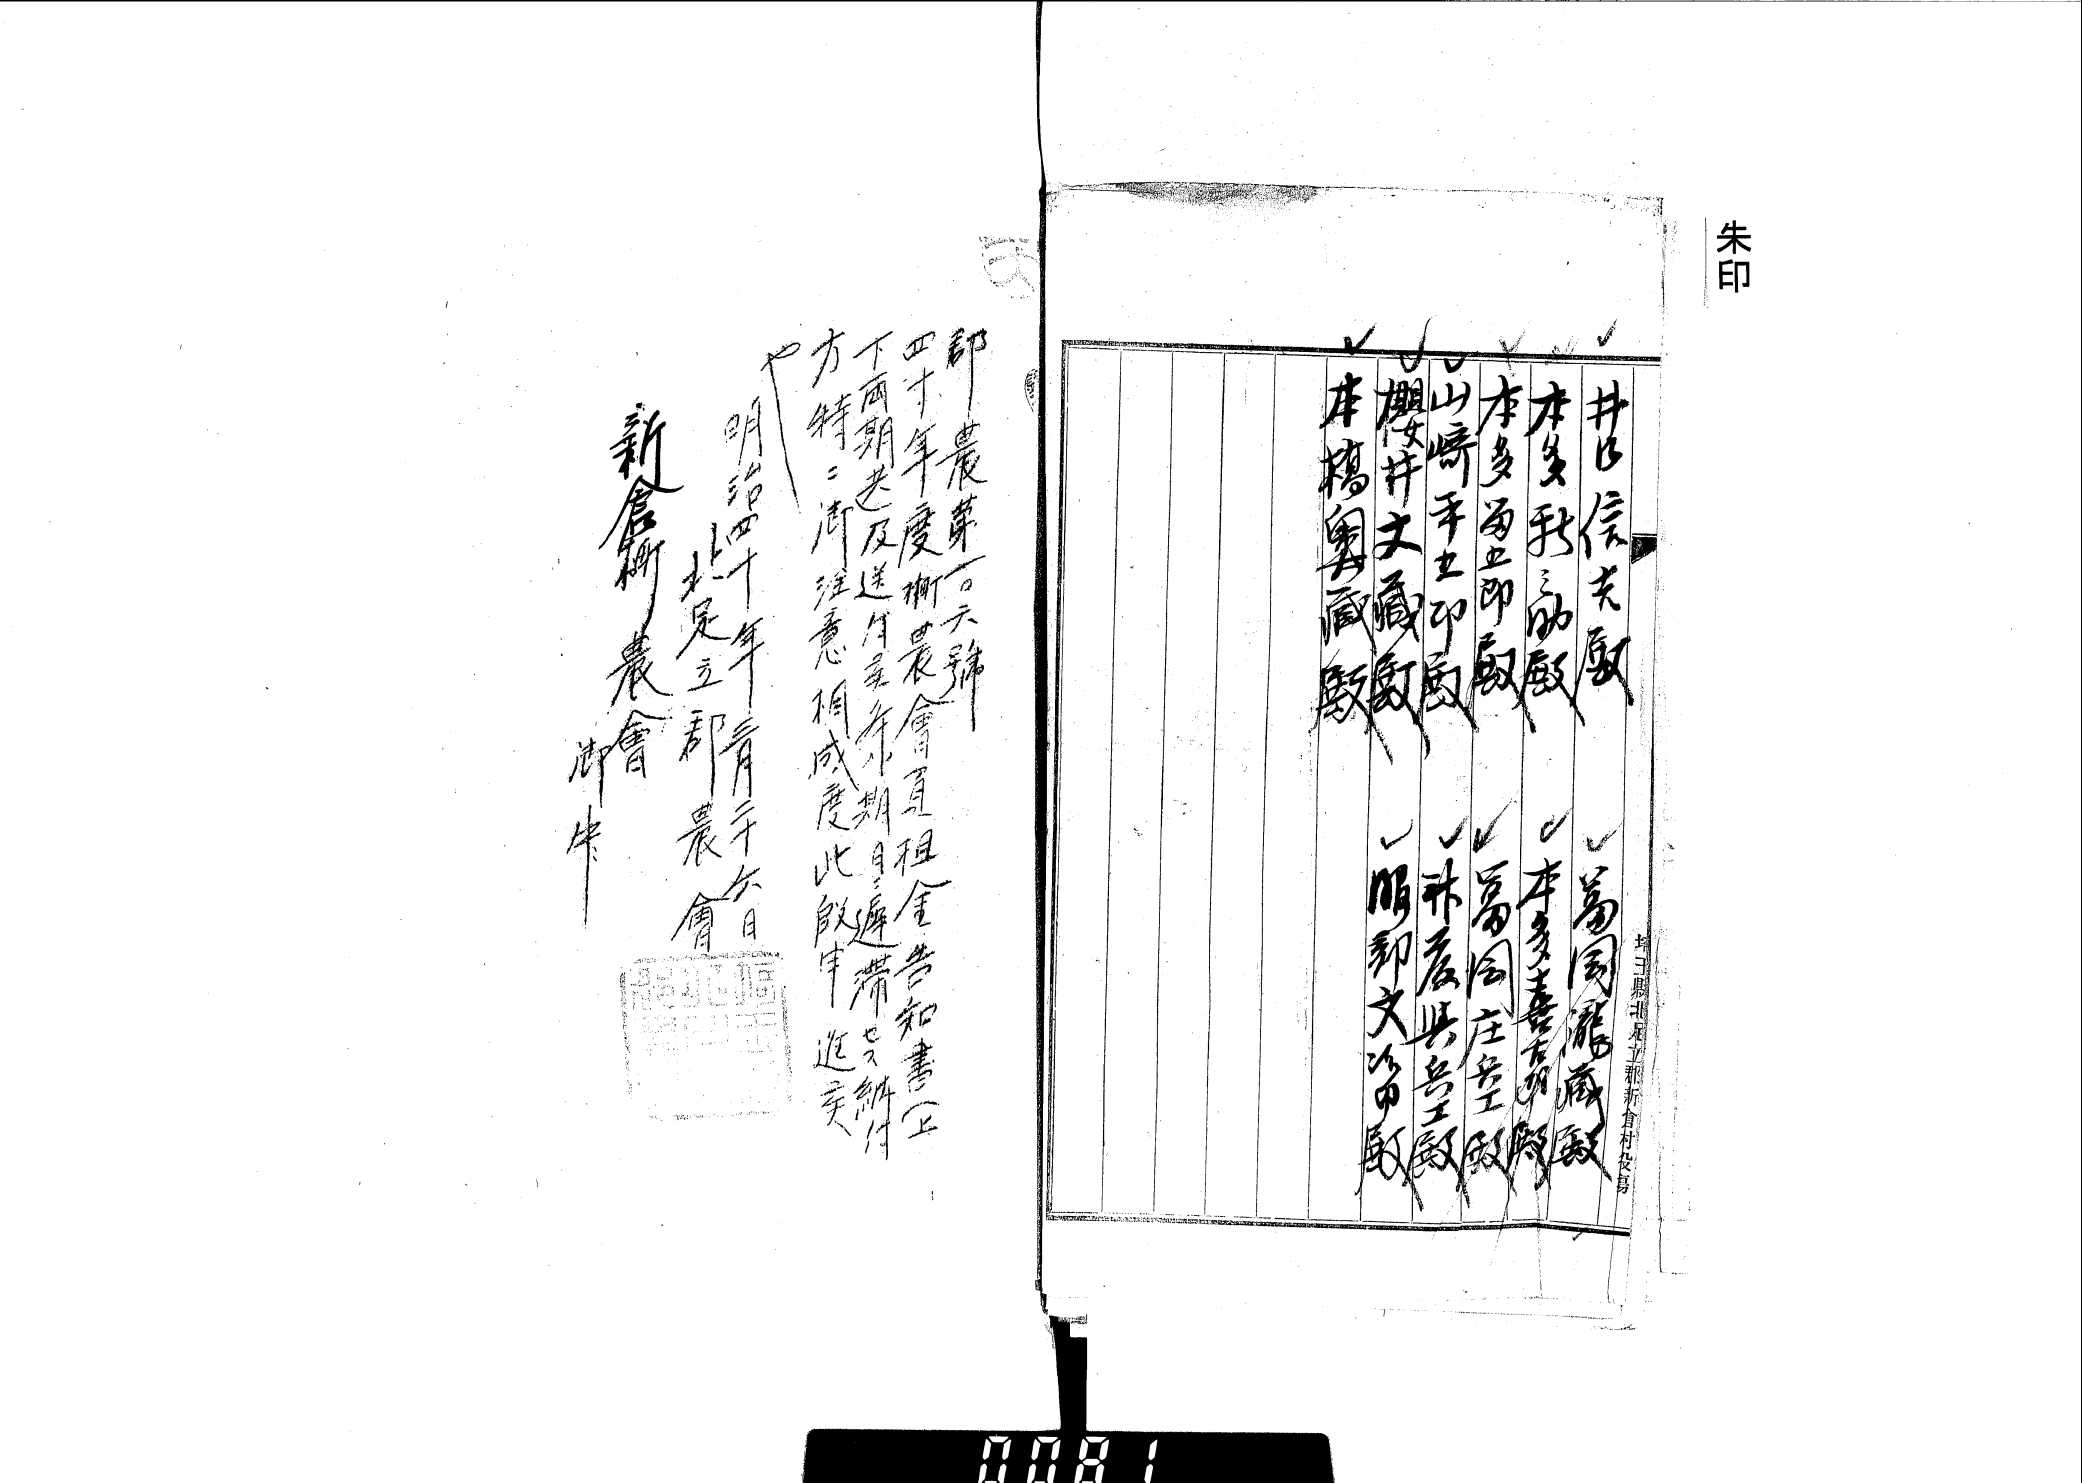 朱印
井口信夫殿
本多新之助殿
本多留五郎殿
山﨑平五郎殿
櫻井文藏殿
本橋奥藏殿
冨岡瀧藏殿
本多喜太郎殿
冨岡庄兵エ殿
兵エ殿
服部文次郎殿
埼玉縣北足立郡新倉村役場
郡農第一〇六號
四十年度村農會負担金告知書(上
下兩期共)及送付候條期日遲滯セス納付
方特ニ御注意相成度此段申進候
也
明治四十年三月二十六日
北足立郡農會
新倉村農會
御中
0081